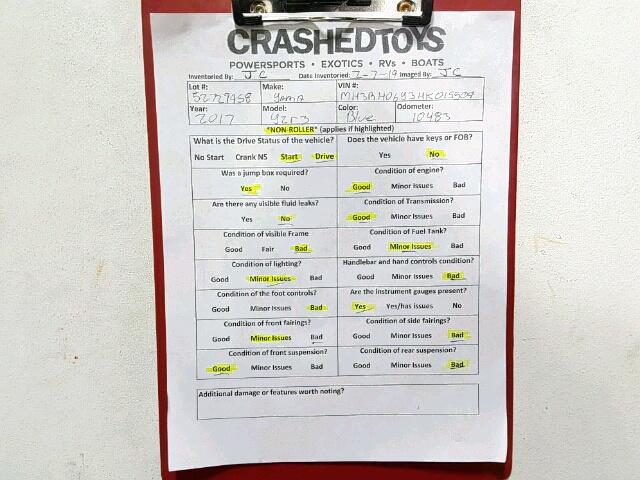 CRASHEDTOYS
POWERSPORTS • EXOTICS • RVs • BOATS
Inventoried By: JC Date Inventoried: 2-7-19 Imaged By: JC
Lot #: Make: VIN #:
52729458 Yama
Year: Model: Color: Odometer:
2017 YZFR3 Blue 10483
*NON-ROLLER* (applies if highlighted)
What is the Drive Status of the vehicle? Does the vehicle have keys or FOB?
No Start Crank NS Start Drive Yes No
Was a jump box required? Condition of engine?
Yes No Good Minor Issues Bad
Are there any visible fluid leaks? Condition of Transmission?
Yes No Good Minor Issues Bad
Condition of visible Frame Condition of Fuel Tank?
Good Fair Bad Good Minor Issues Bad
Condition of lighting? Handlebar and hand controls condition?
Good Minor Issues Bad Good Minor Issues Bad
Condition of the foot controls? Are the instrument gauges present?
Good Minor Issues Bad Yes Yes/has issues No
Condition of front fairings? Condition of side fairings?
Good Minor Issues Bad Good Minor Issues Bad
Condition of front suspension? Condition of rear suspension?
Good Minor Issues Bad Good Minor Issues Bad
Additional damage or features worth noting?